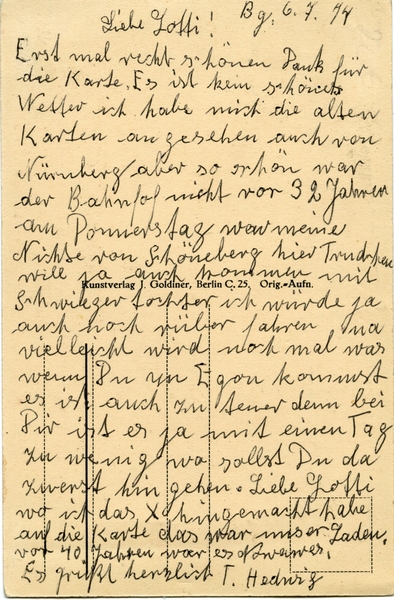 Bg. 6.7.74
Liebe Lotti!
Erst mal recht schönen Dank für
die Karte. Es ist kein schönes
Wetter ich habe mich die alten
Karten angesehen auch von
Nürnberg aber so schön war
der Bahnhof nicht vor 32 Jahren
am Donnerstag war meine
Nichte von Schöneberg hier Trudchen
will ja auch kommen mit
Kunstverlag J. Goldiner, Berlin C. 25. Orig.-Aufn.
Schwiegertochter ich würde ja
auch noch rüber fahren na
vielleicht wird noch mal was
wenn Du Egon kommst
es ist auch zu teuer denn bei
Dir ist es ja mit einen Tag
zu wenig wo sollst Du da
zuerst hin gehen. Liebe Lotti
wo ist das X hingemacht habe
auf die Karte das war unser Laden.
vor 40 Jahren war es
Es grüßt herzlich T. Hedwig